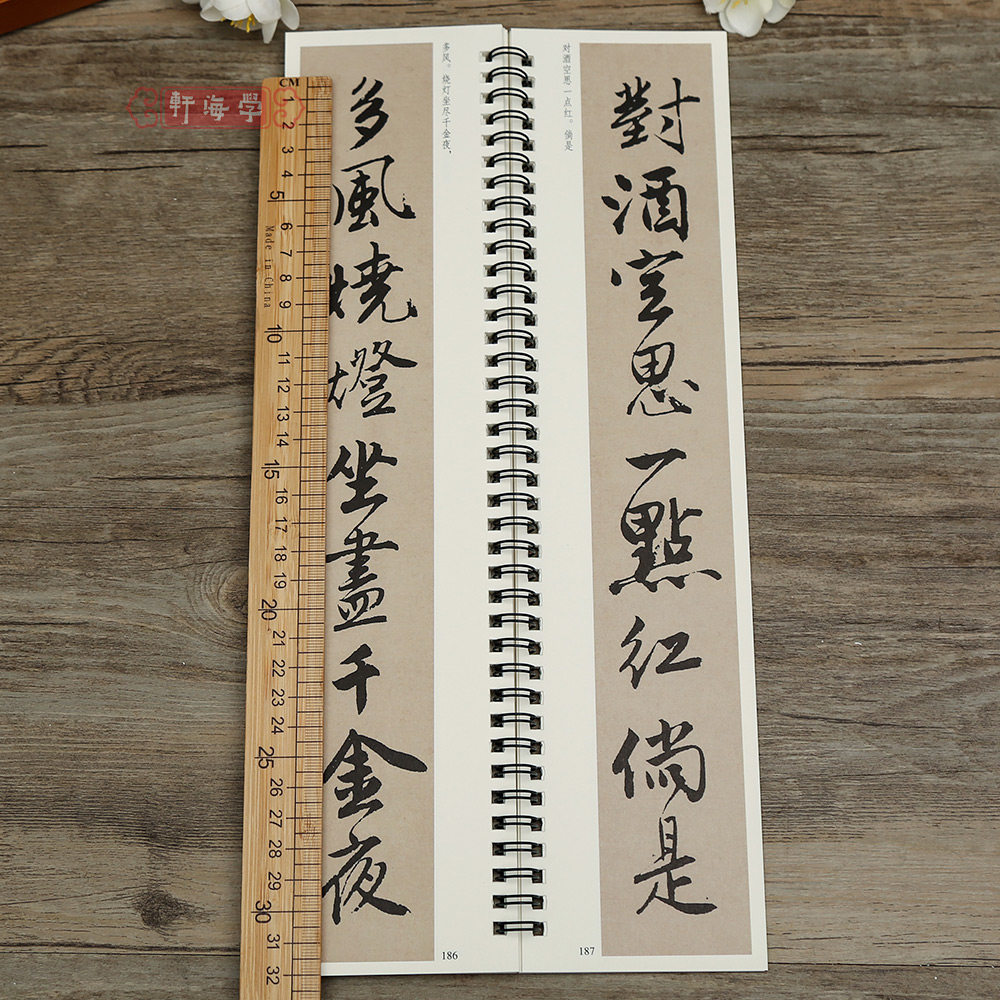 軒海學
CM
1
2
3
4
5
6
7
8
9
10
11
12
13
14
15
16
17
18
19
20
21
22
23
24
25
26
27
28
29
30
31
32
Made in China
多風燒燈坐盡千金夜
多风。烧灯坐尽千金夜，
186
对酒空思一点红。倘是
對酒空思一點紅倘是
187